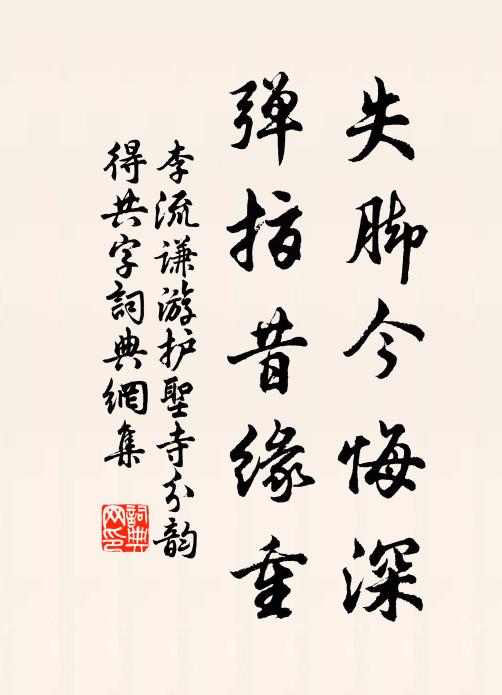 失脚今悔深
弹指昔缘重
李流谦游护聖寺分韵
得共字詞典網集
詞典
网印